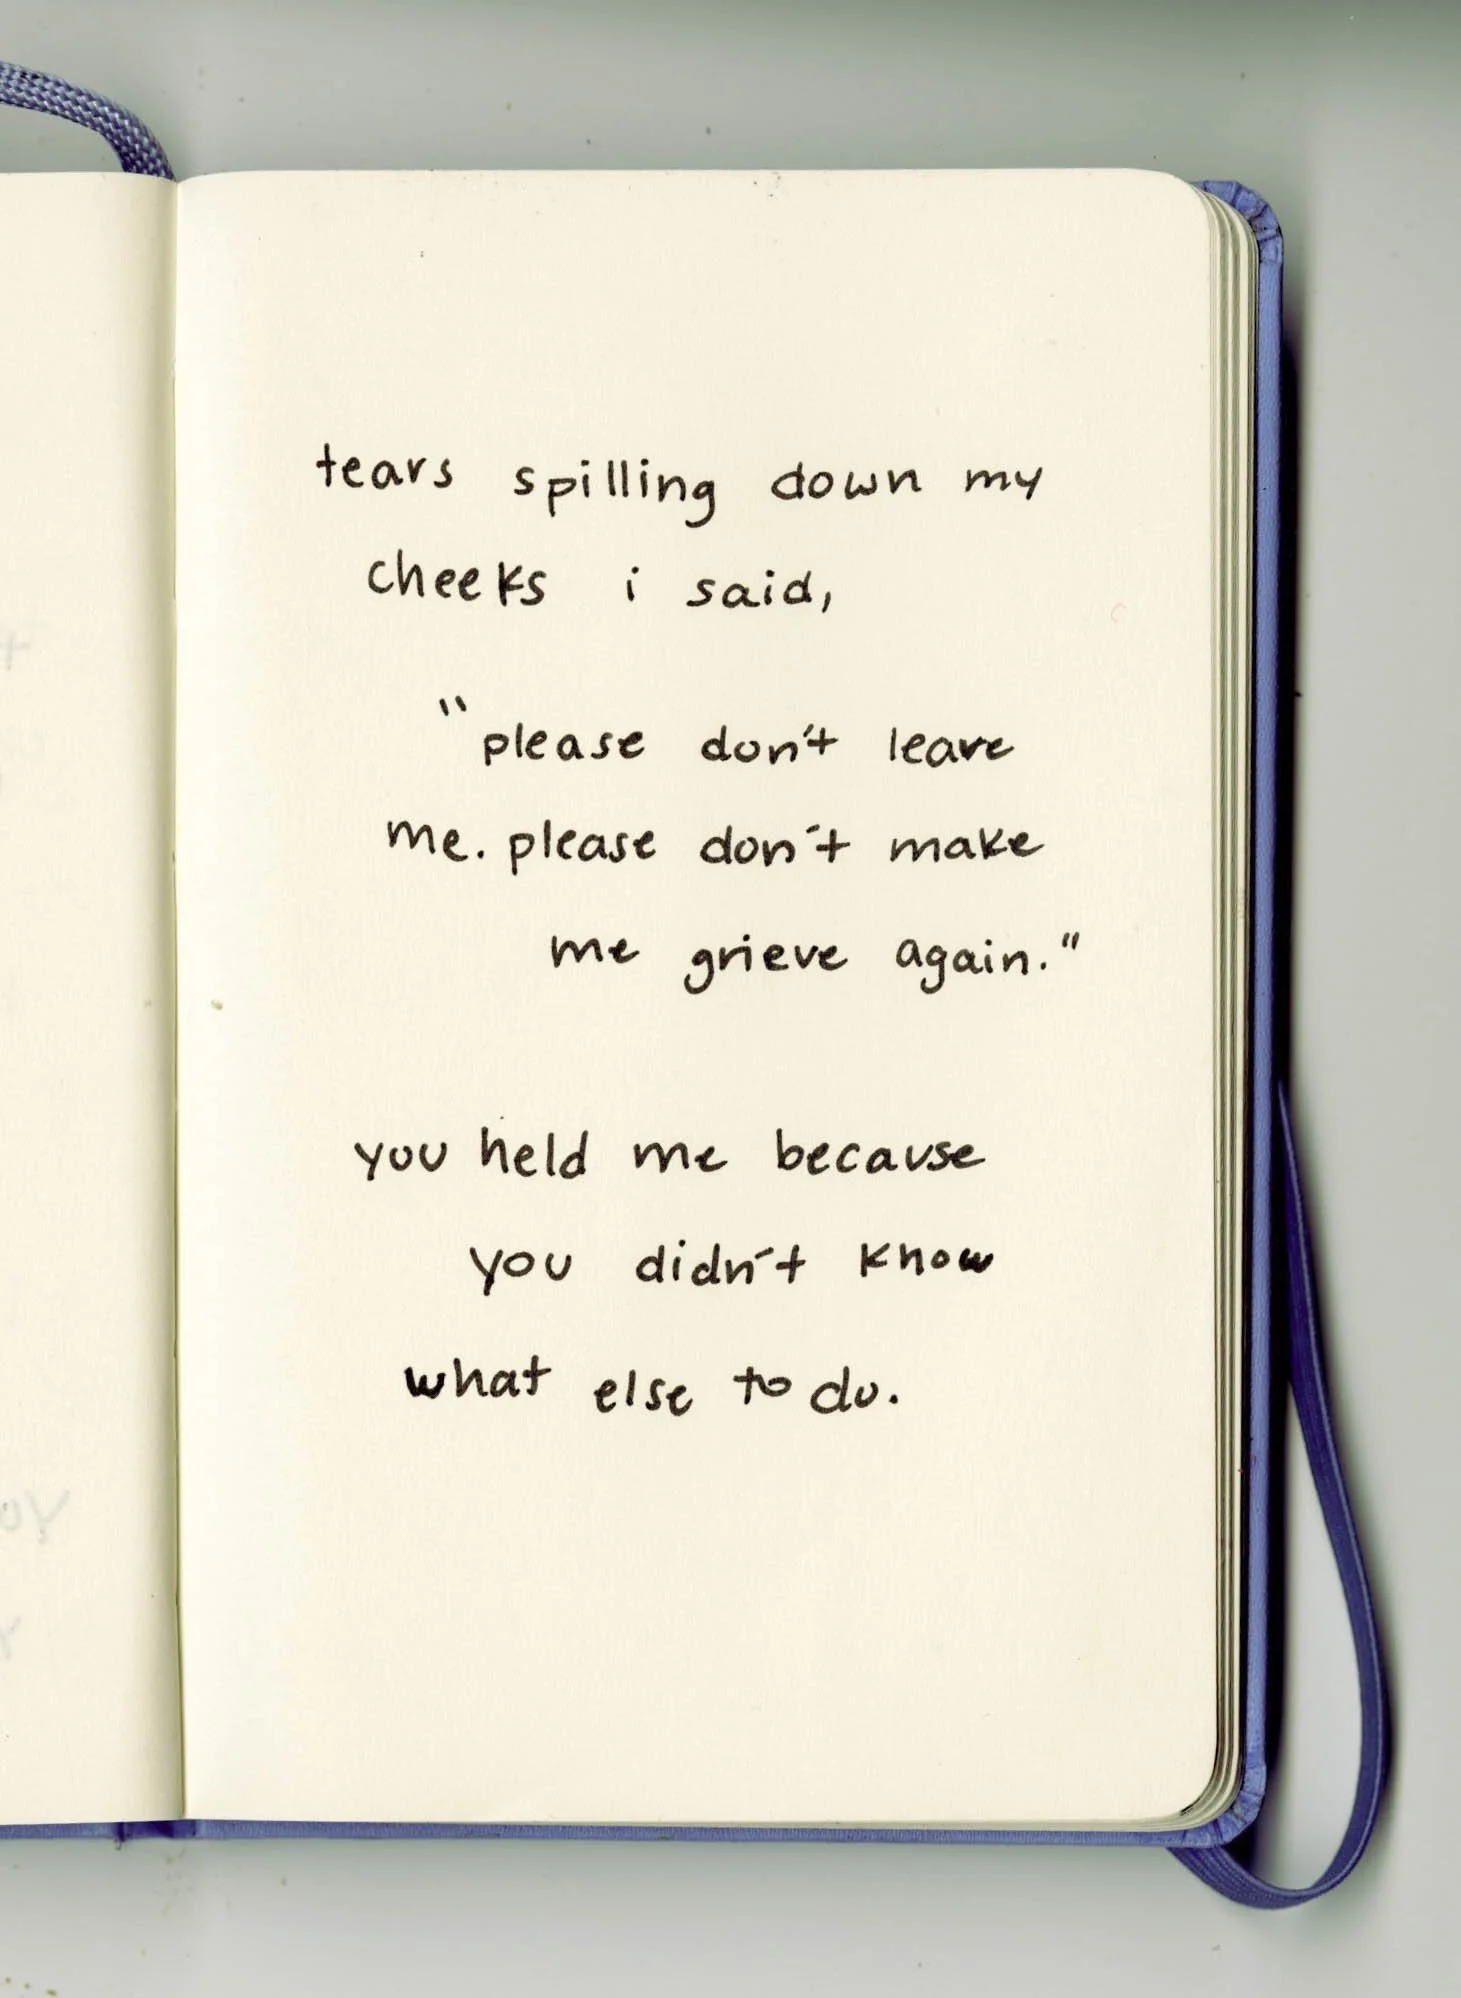 tears spilling down my
cheeks i said,
"please don't leave
me. please don't make
me grieve again."
you held me because
you didn't know
what else to do.